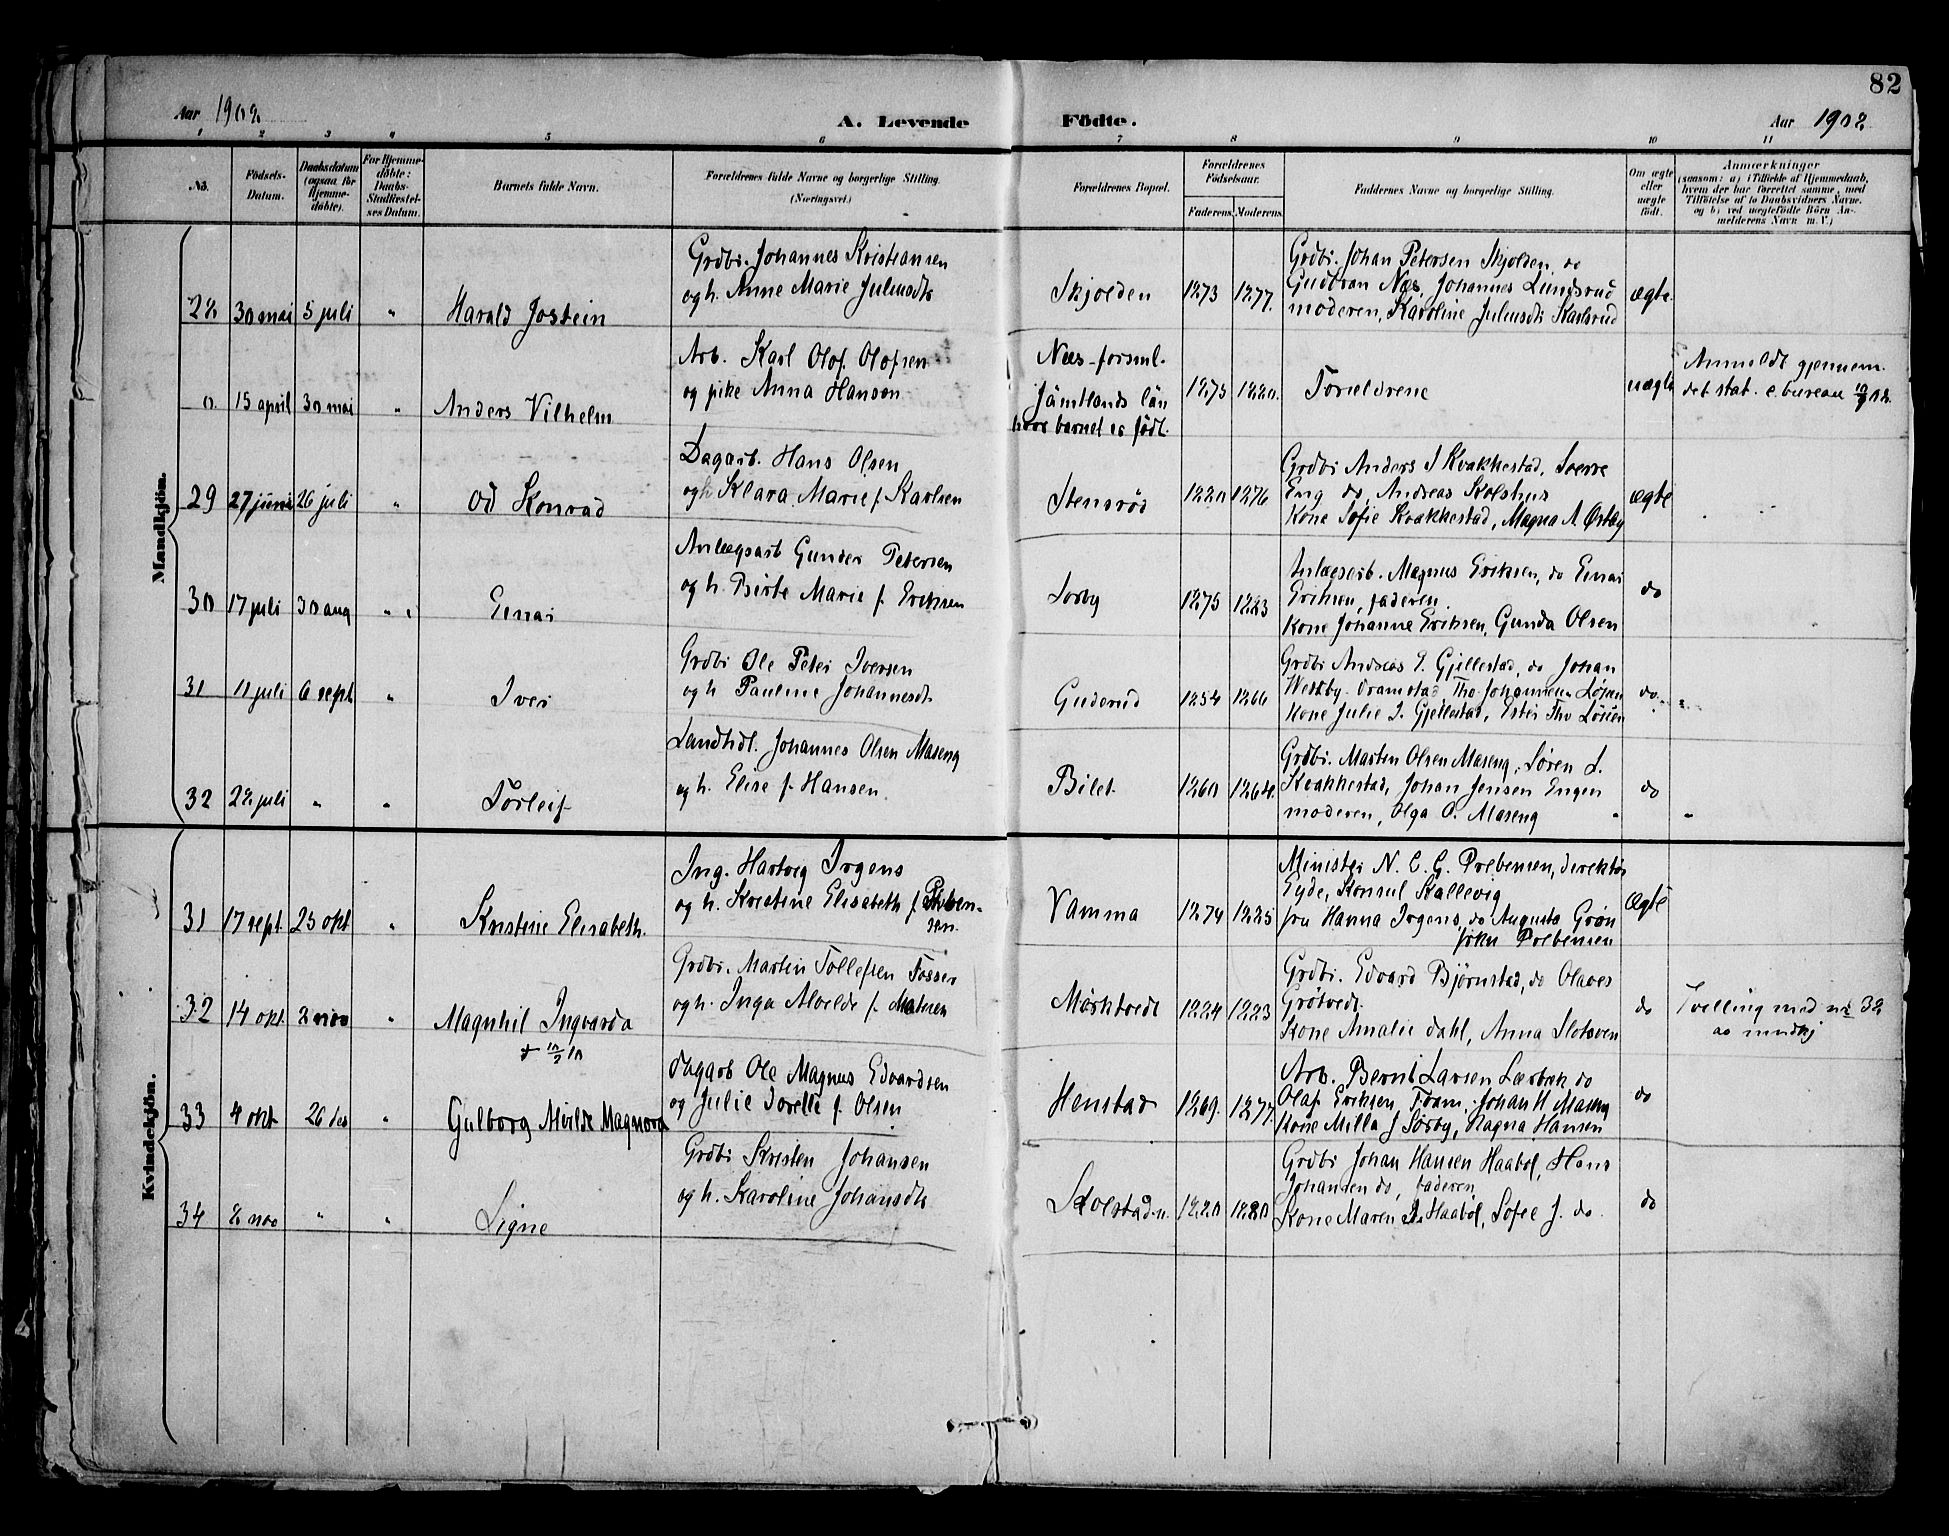 82
Aar 1908
A. Levende Födte.
Aar 1908
1 2 3 4 5 6 7 8 9 10 11
No.
Födsels-Datum.
Daabsdatum (ogsaa for Hjemme-döbte).
For Hjemme-döbte: Daabs-Stadfæstel-ses Datum.
Barnets fulde Navn.
Forældrenes fulde Navne og borgerlige Stilling.
(Næringsvei.)
Forældrenes Bopæl.
Forældrenes Födselsaar.
Faderens Moderens
Faddernes Navne og borgerlige Stilling.
Om ægte eller uægte födt.
Anmærkninger
(saasom: a) i Tilfælde af Hjemmedaab,
hvem der har forrettet samme, med
Tilföielse af to Daabsvidners Navne,
og b) ved uægtefödte Börn An-
melderens Navn m. V.)
Mandkjön.
28 30 mai 5 juli " Harald Jostein
Grdbr. Johannes Kristiansen
og h. Anne Marie Juliusdtr
Skjolden 1873 1877.
Grdbr. Johan Petersen Skjolden, do
Gudbran Næs, Johannes Lundsrud
moderen, Karoline Juliusdtr Karlsrud
ægte.
0. 15 april 30 mai " Anders Vilhelm
Arb. Karl Olof Olofsen
og pike Anna Hansen
Næs-forsml.
Jämtlands län
hvor barnet er födt.
1875 1880.
Forældrene
uægte
Anmeldt gjennem
det stat. c. bureau
29 27 juni 26 juli " Od Konrad
Dagarb. Hans Olsen
og h Klara Marie f. Karlsen
Stensrød 1880 1876
Grdbr Anders J Kvakkestad, Sverre
Eng do, Andreas Kolshus
Kone Sofie Kvakkestad, Magna A Ørsby
ægte
30 17 juli 30 aug " Einar
Anlægsarb Gunder Petersen
og h. Birte Marie f. Eriksen
Sorby 1875 1883
Anlægsarb. Magnus Eriksen, do Einar
Eriksen, faderen.
Kone Johanne Eriksen, Gunda Olsen
do
31 11 juli 6 sept " Iver
Grdbr Ole Peter Iversen
og h Pauline Johannesdtr
Guderud 1854 1866
Grdbr Andreas J. Gjellestad, do Johan
Westby Dramstad, Tho. Johannesen Löken
Kone Julie J. Gjellestad, Ester Tho Löken
do.
32 28 juli " " Torleif
Landhdl. Johannes Olsen Maseng
og h. Elise f. Hansen
Bilet 1860 1864.
Grdbr. Marten Olsen Maseng, Søren L.
Kvakkestad, Johan Jensen Engen
moderen, Olga O. Maseng
do "
Kvindekjön.
31 17 sept. 25 okt " Kristine Elisabeth.
Ing. Hartvig Irgens
og h. Kristine Elisabeth f. Preben-
sen.
Vamma 1874 1885
Minister N. C. G. Prebensen, direktør
Eyde, Konsul Kallevig
fru Hanna Irgens, do Augusta Grøn
frkn Prebensen
Ægte
32 14 okt. 2 nov " Magnhil Ingvarda
Grdbr. Martin Tollefsen Fosser
og h. Inga Alvilde f. Matisen
Mørktvedt 1884 1883
Grdbr. Edvard Bjørnstad, do Olaves
Grøtvedt.
Kone Amalie Dahl, Anna Slotsven
do
Tvelling med nr 32
av mndkj
33 4 okt 26 des " Gulborg Alvilde Magnora
Dagarb Ole Magnus Edvardsen
og Julie Dorette f. Olsen
Henstad 1869. 1877.
Arb. Bernt Larsen Lærbæk do
Olaf Eriksen, Johan H Maseng
Kone Milla J Sørby, Ragna Hansen
do
34 8 nov " " Signe
Grdbr Kristen Johansen
og h. Karoline Johansdtr
Skolstad n. 1880 1880
Grdbr Johan Hansen Haabøl, Hans
Johansen do, faderen,
Kone Maren J. Haabøl, Sofie J. do.
do